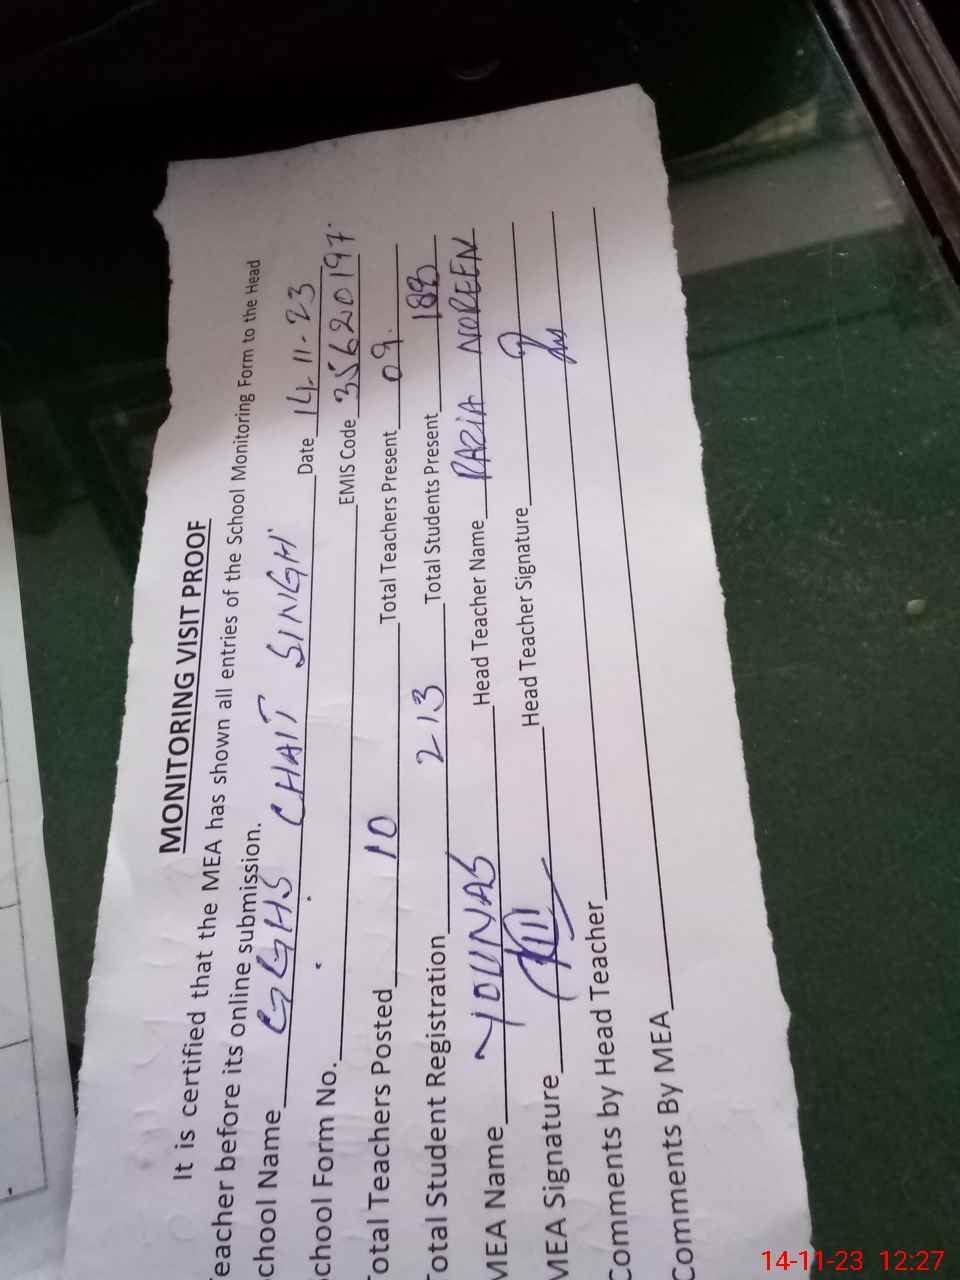 MONITORING VISIT PROOF
It is certified that the MEA has shown all entries of the School Monitoring Form to the Head
eacher before its Online submission.
chool Name GGHS CHAIT SINGH Date 14-11-23
chool Form No. EMIS Code 35620197
otal Teachers Posted 10 Total Teachers Present 09
otal Student Registration 213 Total Students Present
MEA Name YOUNAS Head Teacher Name RAZIA NOREEN
MEA Signature Head Teacher Signature
Comments by Head Teacher
Comments By MEA
14-11-23 12:27